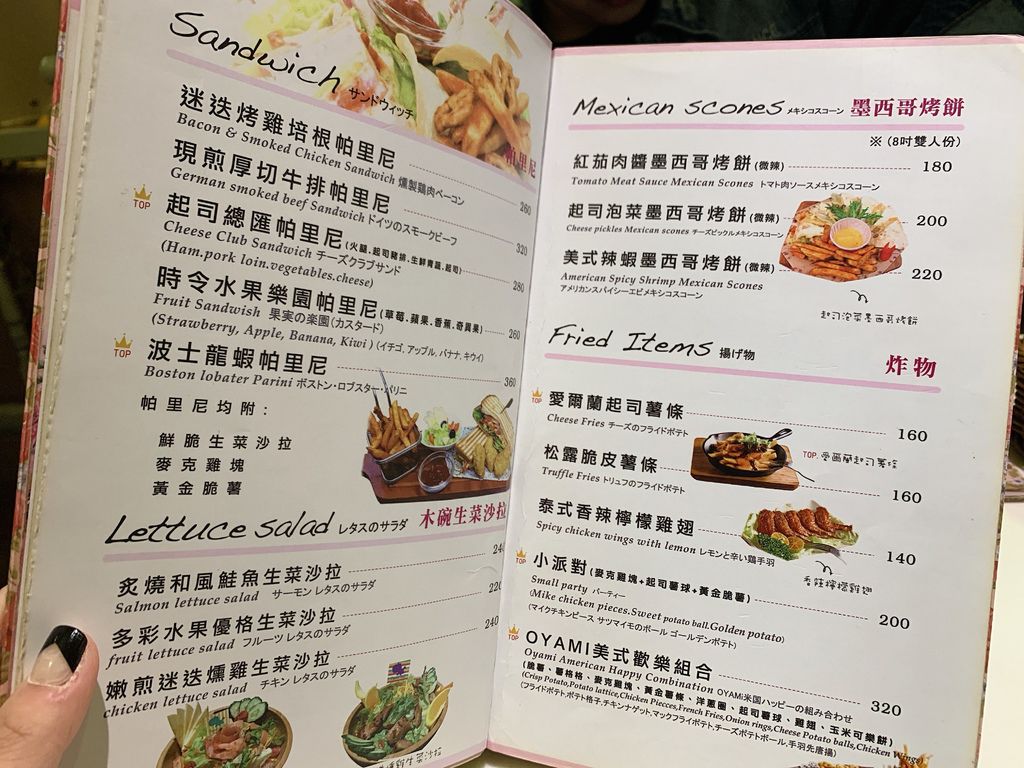 Sandwich サンドウィッチ
帕里尼
迷迭烤雞培根帕里尼 260
Bacon & Smoked Chicken Sandwich 燻製鶏肉ベーコン
現煎厚切牛排帕里尼 320
German smoked beef Sandwich ドイツのスモークビーフ
TOP 起司總匯帕里尼(火腿.起司豬排.生鮮青蔬.起司) 280
Cheese Club Sandwich チーズクラブサンド
(Ham.pork loin.vegetables.cheese)
時令水果樂園帕里尼(草莓.蘋果.香蕉.奇異果) 260
Fruit Sandwish 果実の楽園(カスタード)
(Strawberry, Apple, Banana, Kiwi) (イチゴ, アップル, バナナ, キウイ)
TOP 波士龍蝦帕里尼 360
Boston lobater Parini ボストン・ロブスター・パリニ
帕里尼均附:
鮮脆生菜沙拉
麥克雞塊
黃金脆薯
Lettuce salad レタスのサラダ 木碗生菜沙拉
炙燒和風鮭魚生菜沙拉 240
Salmon lettuce salad サーモン レタスのサラダ
多彩水果優格生菜沙拉 220
fruit lettuce salad フルーツ レタスのサラダ
嫩煎迷迭燻雞生菜沙拉 240
chicken lettuce salad チキン レタスのサラダ
Mexican scones メキシコスコーン 墨西哥烤餅
※(8吋雙人份)
紅茄肉醬墨西哥烤餅(微辣) 180
Tomato Meat Sauce Mexican Scones トマト肉ソースメキシコスコーン
起司泡菜墨西哥烤餅(微辣) 200
Cheese pickles Mexican scones チーズピックルメキシコスコーン
美式辣蝦墨西哥烤餅(微辣) 220
American Spicy Shrimp Mexican Scones
アメリカンスパイシーエビメキシコスコーン
起司泡菜墨西哥烤餅
Fried Items 揚げ物 炸物
TOP 愛爾蘭起司薯條 160
Cheese Fries チーズのフライドポテト
TOP. 愛爾蘭起司薯條
松露脆皮薯條 160
Truffle Fries トリュフのフライドポテト
泰式香辣檸檬雞翅 140
Spicy chicken wings with lemon レモンと辛い鶏手羽
TOP 小派對(麥克雞塊+起司薯球+黃金脆薯) 200
Small party パーティー
(Mike chicken pieces.Sweet potato ball.Golden potato)
(マイクチキンピース サツマイモのボール ゴールデンポテト)
TOP OYAMI美式歡樂組合 320
Oyami American Happy Combination OYAMI米国ハッピーの組み合わせ
(脆薯、薯格格、麥克雞塊、黃金薯條、洋蔥圈、起司薯球、雞翅、玉米可樂餅)
(Crisp Potato,Potato lattice,Chicken Piecces,French Fries,Onion rings,Cheese Potato balls,Chicken Wings)